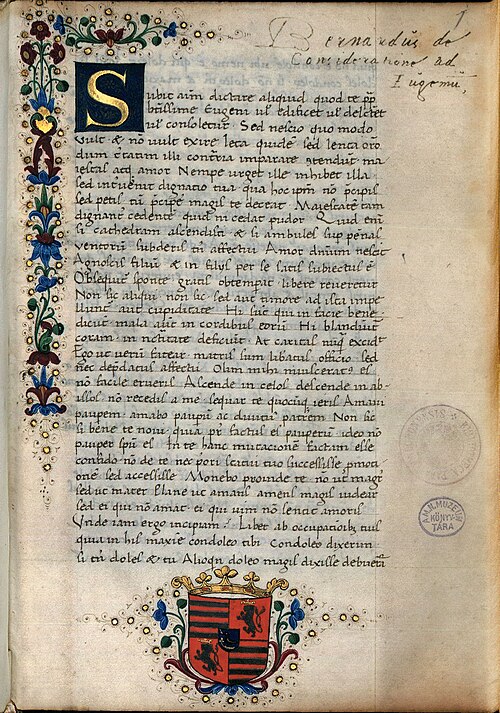 1
Bernardus de
Consideratione ad
Eugeniu,
Subit aim dictare aliquid quod te pp
btissime Eugeni ul edificet ul delectet
ul consoletur. Sed nescio quo modo
vult & no vult exire leta quide sed lenta oro
dum ctatim illi contria imparare atendut ma
iestas atq amor Nempe urget ille inhibet illa
sed intuenit dignatio tua qua hoc ipm no pcipis
sed petis tu pcipe magis te deceat. Maiestate tam
dignant cedente quid ni cedat pudor Quid eni
si cathedram ascendisti & si ambules sup penas
ventoru subderis tn affectui Amor dnum nescit
Agnoscit filiu & in filijs per se satis subiectus e
Obsequit sponte gratis obtempat libere reueretur
Non sic aliqui non sic sed aut timore ad ista impe
lluntt aut cupiditate Hi sut qui in facie bene
dicut mala aut in cordibus eoru Hi blandiunt
coram in ncitate deficiut At caritas nuq excidt
Ego ut veru fatear matris sum libatus officio sed
nec depdatus affectu Olim mihi inuisceratus es
no facile erueris Ascende in celos descende in ab
issos no recedis a me sequar te quocuq ieris Amaui
paupem amabo paupu ac diuitu patrem Non sic
si bene te noui quia pr factus es pauperu ideo no
pauper spu es In te hanc mutacione factam esse
confido no de te nec pori statui tuo successisse pmoti
one sed accessisse Monebo proinde te no ut magr
sed ut mater Plane ut amans amens magis videar
sed ei qui no amat ei qui uim no sentit amoris
Unde iam ergo incipiam Libet ab occupatioibus tuis
quia in his maxie condoleo tibi Condoleo dixerim
si tn doles & tu Alioqn doleo magis dixisse debueri
A M. N. MUZEUM
KÖNYV-
TÁRA